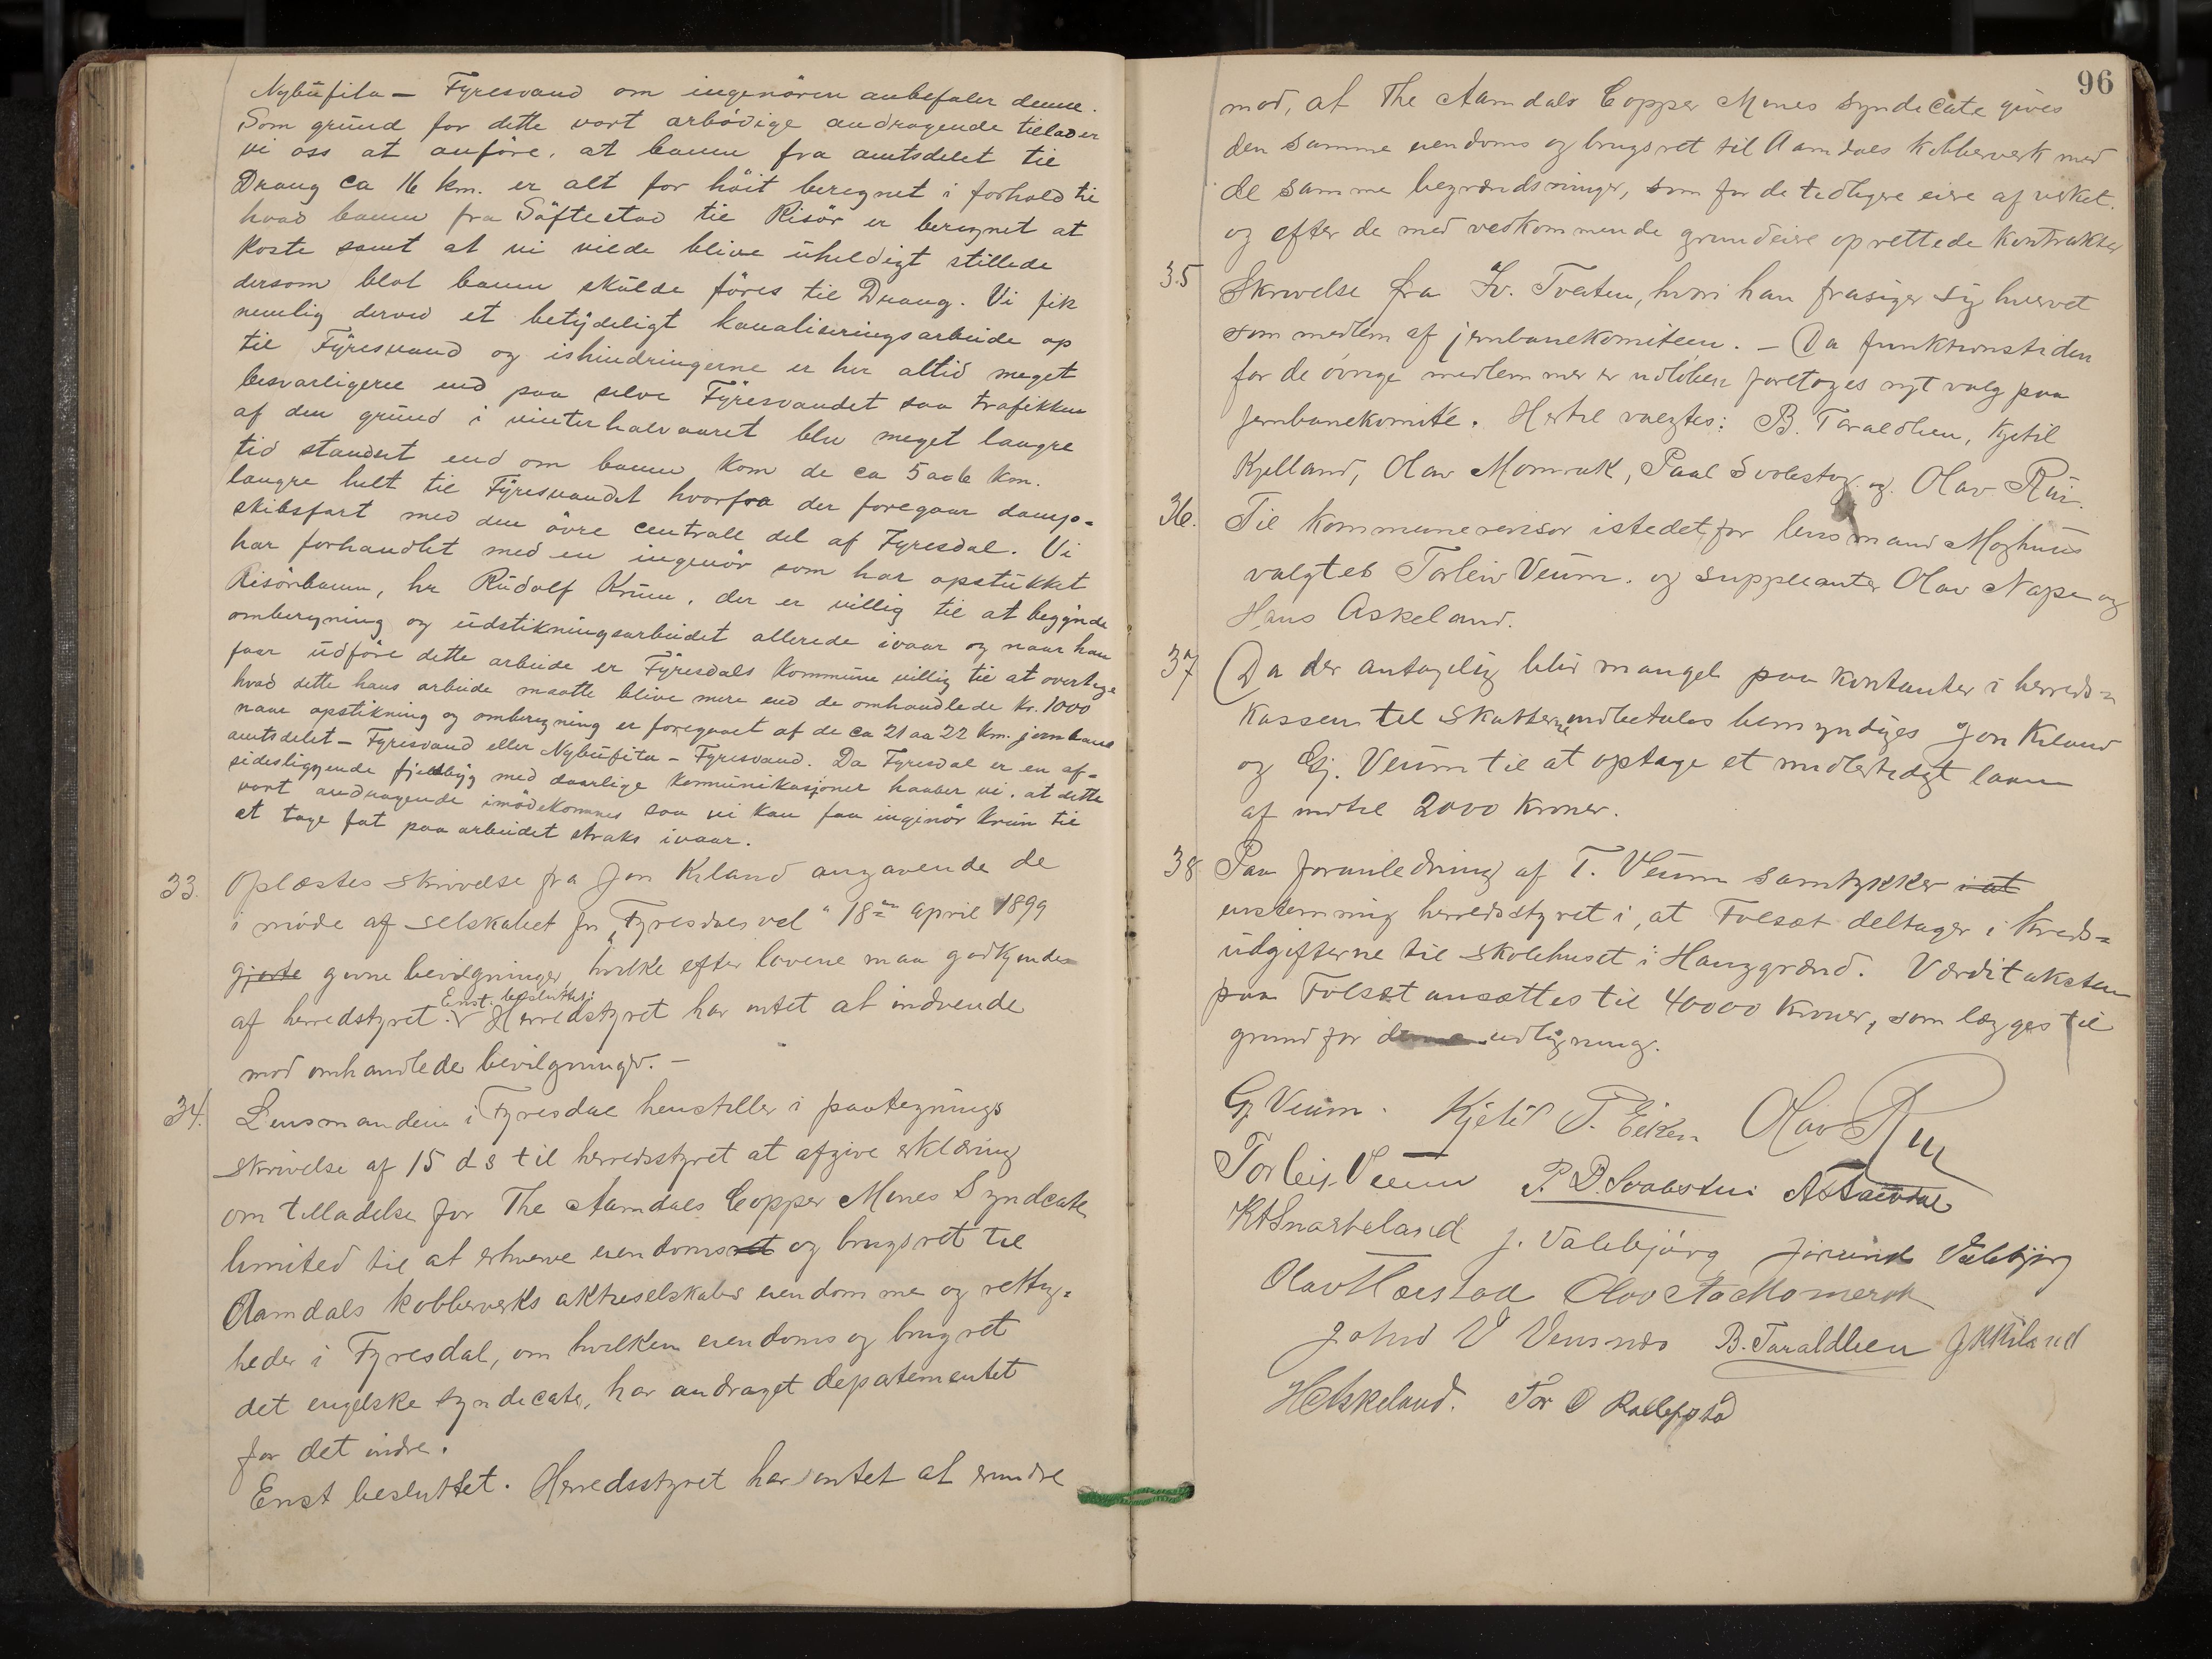 Nybufita - Fyresvand om ingenören anbefaler denne.
Som grund for dette vort arbödige andragende tillader
vi oss at anföre, at banen fra amtsdelet til
Draug ca 16 km. er alt for höit beregnet i forhold til
hvad banen fra Söftestad til Risör er beregnet at
koste samt at vi vilde blive uheldigt stillede
dersom blot banen skulde föres til Draug. Vi fik
nemlig derved et betydeligt kanaliseringsarbeide op
til Fyresvand og ishindringerne er her altid meget
besværligere end paa selve Fyresvandet saa trafikken
af den grund i vinterhalvaaret blev meget længre
tid standset end om banen kom de ca 5 a 6 km.
længre helt til Fyresvandet hvorfra der foregaar damp-
skibsfart med den övre centrale del af Fyresdal. Vi
har forhandlet med en ingenör som har opstukket
Risörbanen, hr Rudolf Krun, der er villig til at begynde
omberegning og udstikningsarbeidet allerede ivaar og naar han
faar udföre dette arbeide er Fyresdals kommune villig til at overtage
hvad dette hans arbeide maatte blive mere end de omhandlede kr. 1000
naar opstikning og omberegning er foregaaet af de ca 21 aa 22 km. jernbane
amtsdelet - Fyresvand eller Nybufita - Fyresvand. Da Fyresdal er en af-
sidesliggende fjeldbyg med daarlige kommunikasjoner haaber vi, at dette
vort andragende imödekommes saa vi kan faa ingenör Krun til
at tage fat paa arbeidet straks ivaar.
33. Oplæstes skrivelse fra Jon Kiland angaaende de
i möde af selskabet for "Fyresdals vel" 18de april 1899
gjorte givne bevilgninger, hvilke efter lovene maa godkjendes
af herredstyret. Enst. besluttet: Herredstyret har intet at indvende
mod omhandlede bevilgninger. -
34. Lensmanden i Fyresdal henstiller i paategnings
skrivelse af 15 ds til herredsstyret at afgive erklæring
om tilladelse for The Aamdals Copper Mines Syndicate
limited til at erhverve eiendomsret og brugsret til
Aamdals kobberverks aktieselskabs eiendomme og rettig-
heder i Fyresdal, om hvilken eiendoms og brugsret
det engelske syndicate, har andraget departementet
for det indre.
Enst besluttet. Herredsstyret har intet at erindre
96
mod, at The Aamdals Copper Mines Syndecate gives
den samme eiendoms og brugsret til Aamdals Kobberverk med
de samme begrændsninger, som for de tidligere eiere af verket.
og efter de med vedkommende grundeiere oprettede kontrakter
35 Skrivelse fra Iv. Tveiten, hvori han frasiger sig hvervet
som medlem af jernbanekomiteen. - Da funktionstiden
for de övrige medlemmer er udlöben foretages nyt valg paa
jernbanekomité. Hertil valgtes: B. Taraldlien, Kjetil
Kjelland, Olav Momrak, Paal Svolestög. og. Olav Rui.
36. Til kommunerevisor istedetfor lensmand Moghus
valgtes Torleiv Veum. og suppleanter Olav Nape og
Hans Askeland.
37 Da der antagelig blir mangel paa kontanter i herreds-
kassen til skatterne indbetales bemyndiges Jon Kiland
og Gj. Veum til at optage et midlertidigt laan
af indtil 2000 kroner.
38 Paa foranledning af T. Veum samtykker i at
enstemmig herredsstyret i, at Folsæt deltager i kreds-
udgifterne til skolehuset i Hauggrænd. Værditaksten
paa Folsæt ansættes til 40000 kroner, som lægges til
grund for denne udligning.
Gj Veum. Kjetil T. Eiken Olav Rui
Torleiv Veum
K A Snarteland J. Valebjörg Jörund Valebjörg
Olav Momerak
John V Vensnes B. Taraldlien J K Kiland
H Askeland. Tor O